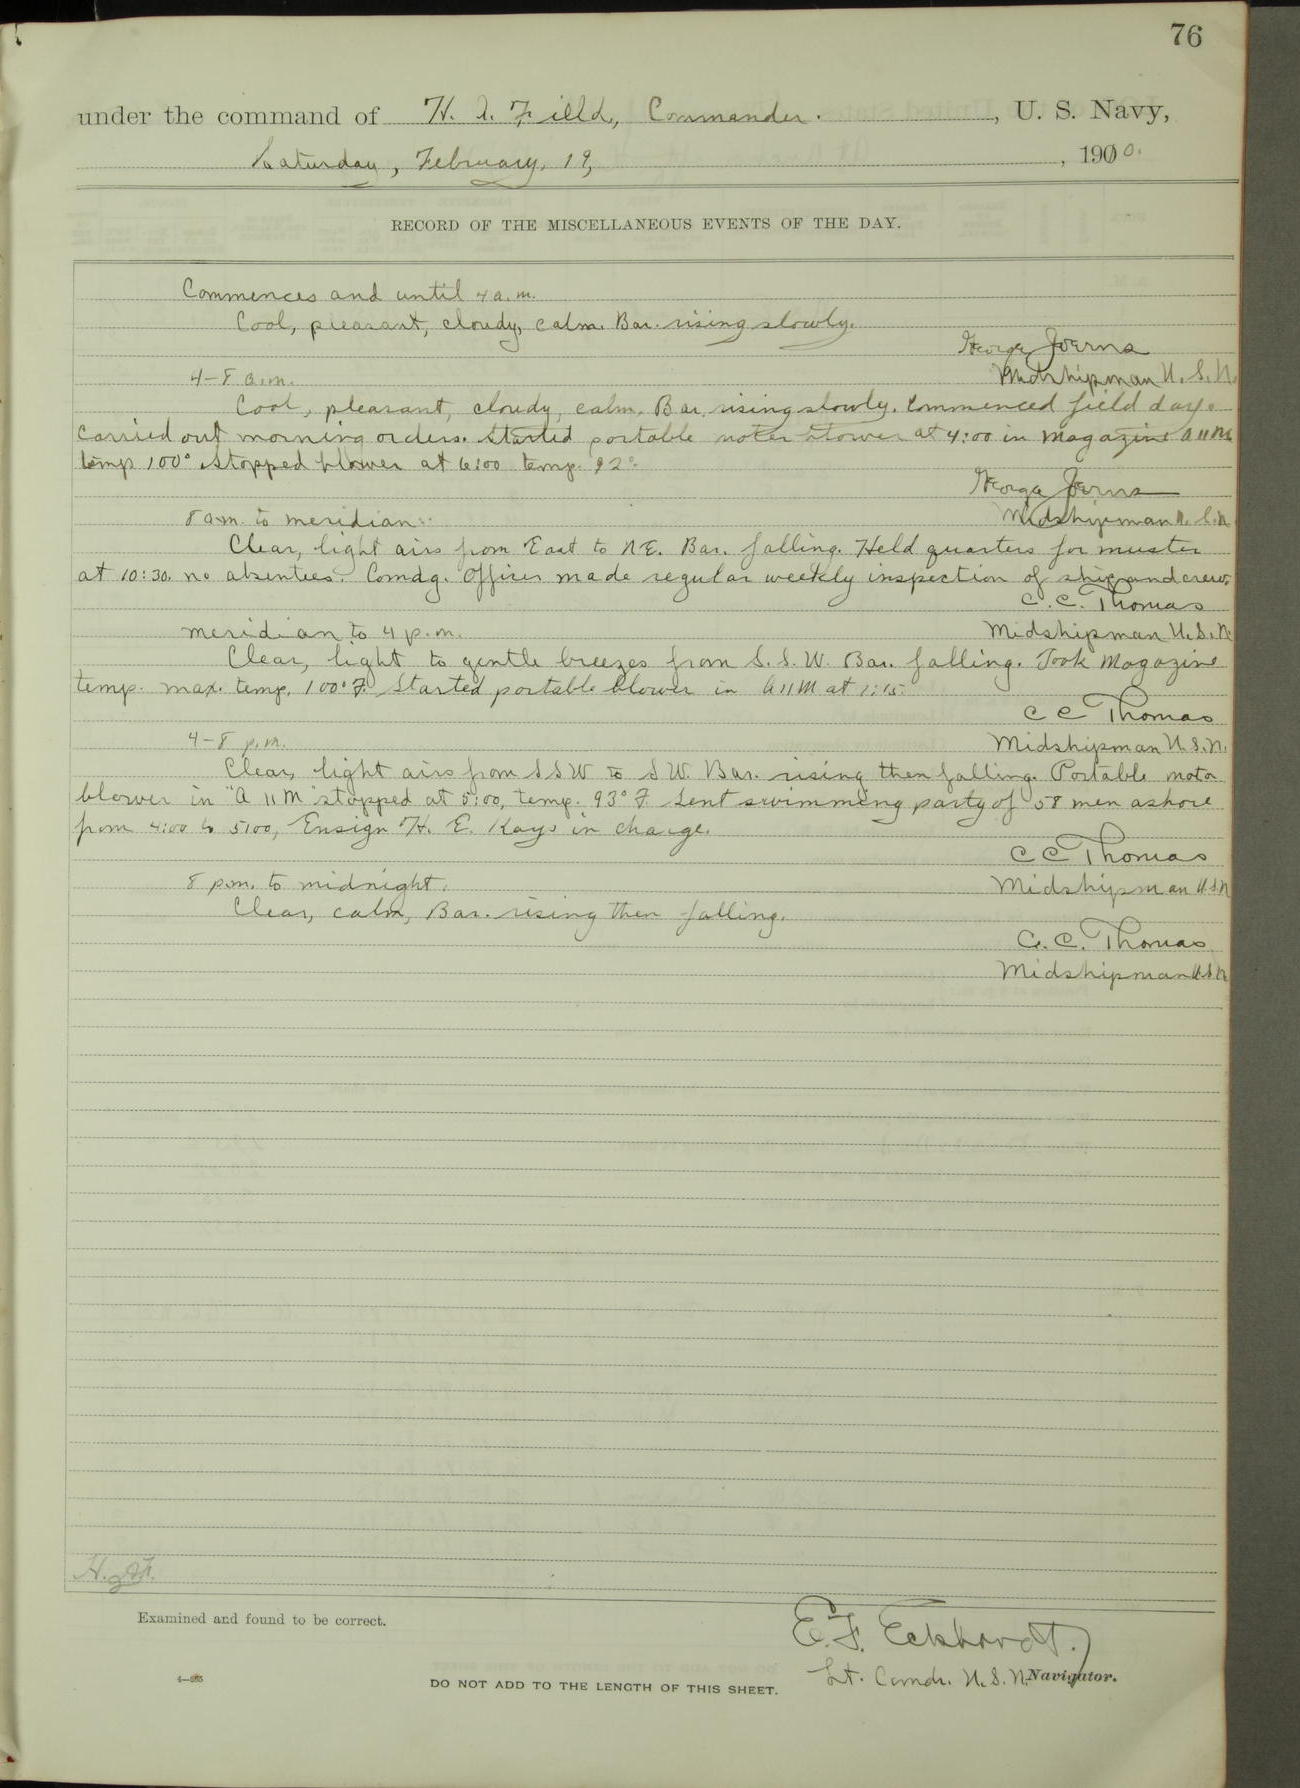 76
under the command of H. A. Field, Commander. , U. S. Navy,
Saturday, February, 19, , 1910.
RECORD OF THE MISCELLANEOUS EVENTS OF THE DAY.
Commences and until 4 a.m.
Cool, pleasant, cloudy, calm. Bar. rising slowly.
George Joerns
Midshipman U.S.N.
4-8 a.m.
Cool, pleasant, cloudy, calm. Bar. rising slowly. Commenced field day.
Carried out morning orders. Started portable motor blower at 4:00 in Magazine A11M
temp 100° Stopped blower at 6:00 temp. 92°.
George Joerns
Midshipman U.S.N.
8 a.m. to meridian.
Clear, light airs from East to NE. Bar. falling. Held quarters for muster
at 10:30. no absentees. Comdg. Officer made regular weekly inspection of ship and crew.
C. C. Thomas
Midshipman U.S.N.
meridian to 4 p.m.
Clear, light to gentle breezes from S.S.W. Bar. falling. Took Magazine
temp. max. temp. 100° F. Started portable blower in A11M at 1:15.
C C Thomas
Midshipman U.S.N.
4-8 p.m.
Clear, light airs from SSW to SW. Bar. rising then falling. Portable motor
blower in "A 11 M" stopped at 5:00, temp. 93° F. Sent swimming party of 58 men ashore
from 4:00 to 5:00, Ensign H. E. Kays in charge.
C C Thomas
Midshipman U.S.N
8 p.m. to midnight.
Clear, calm, Bar. rising then falling.
C. C. Thomas
Midshipman U.S.N
H.A.F.
Examined and found to be correct.
E. F. Eckhardt.
Lt. Comdr. U.S.N. Navigator.
DO NOT ADD TO THE LENGTH OF THIS SHEET.